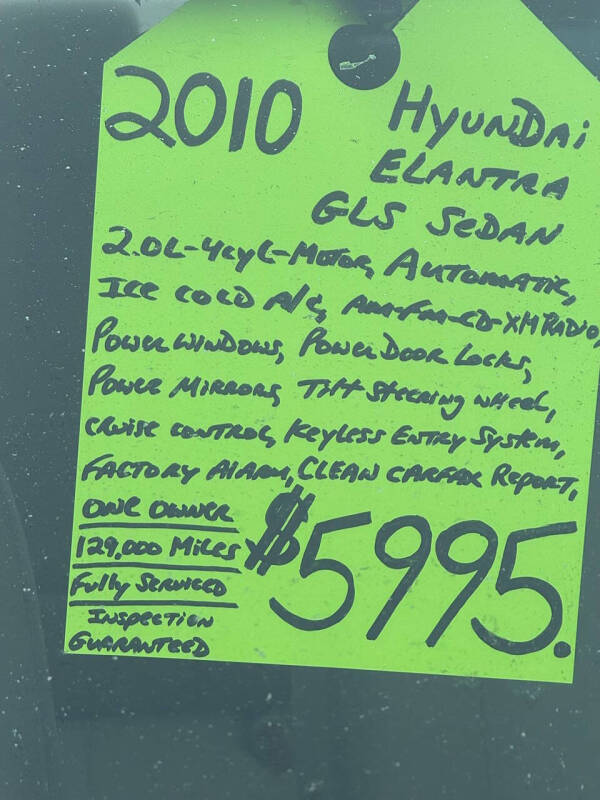 2010
HYUNDAi
ELANTRA
GLS SEDAN
2.0L-4cyl-Motor, Automatic,
Ice cold A/C, Am-Fm-CD-XM RADIO,
Power Windows, Power Door Locks,
Power Mirrors, Tilt Steering wheel,
cruise control, Keyless Entry System,
FACTORY AlARm, CLEAN CARFAX Report,
ONE OWNER
129,000 Miles
Fully Serviced
INSPECTION
GUARANTEED
$5995.